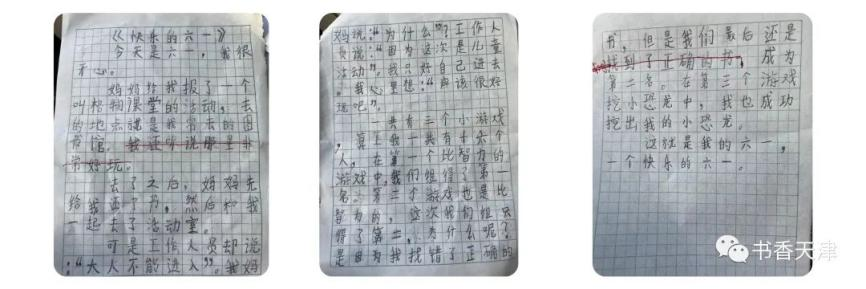 《快乐的六一》
今天是六一，我很
开心。
妈妈给我报了一个
叫格物课堂的活动，去
的地点就是我常去的图
书馆，我还听说那里非
常好玩。
去了之后，妈妈先
给我还了书，然后和我
一起去了活动室。
可是工作人员却说
：“大人不能进入”。我妈
妈说：“为什么”？工作人
员说：“因为这次是儿童
活动”。我只好自己进去
。我心里想：“应该很好
玩吧”。
一共有三个小游戏
，算上我一共有十六个
人。在第一个比智力的
游戏中，我们组得了第一
名。第二个游戏也是比
智力的，这次我们组只
得了第二，为什么呢？
是因为我找错了正确的
书，但是我们最后还是
找到了正确的书，成为
第二名。在第三个游戏
挖小恐龙中，我也成功
挖出我的小恐龙。
这就是我的六一，
一个快乐的六一。
书香天津